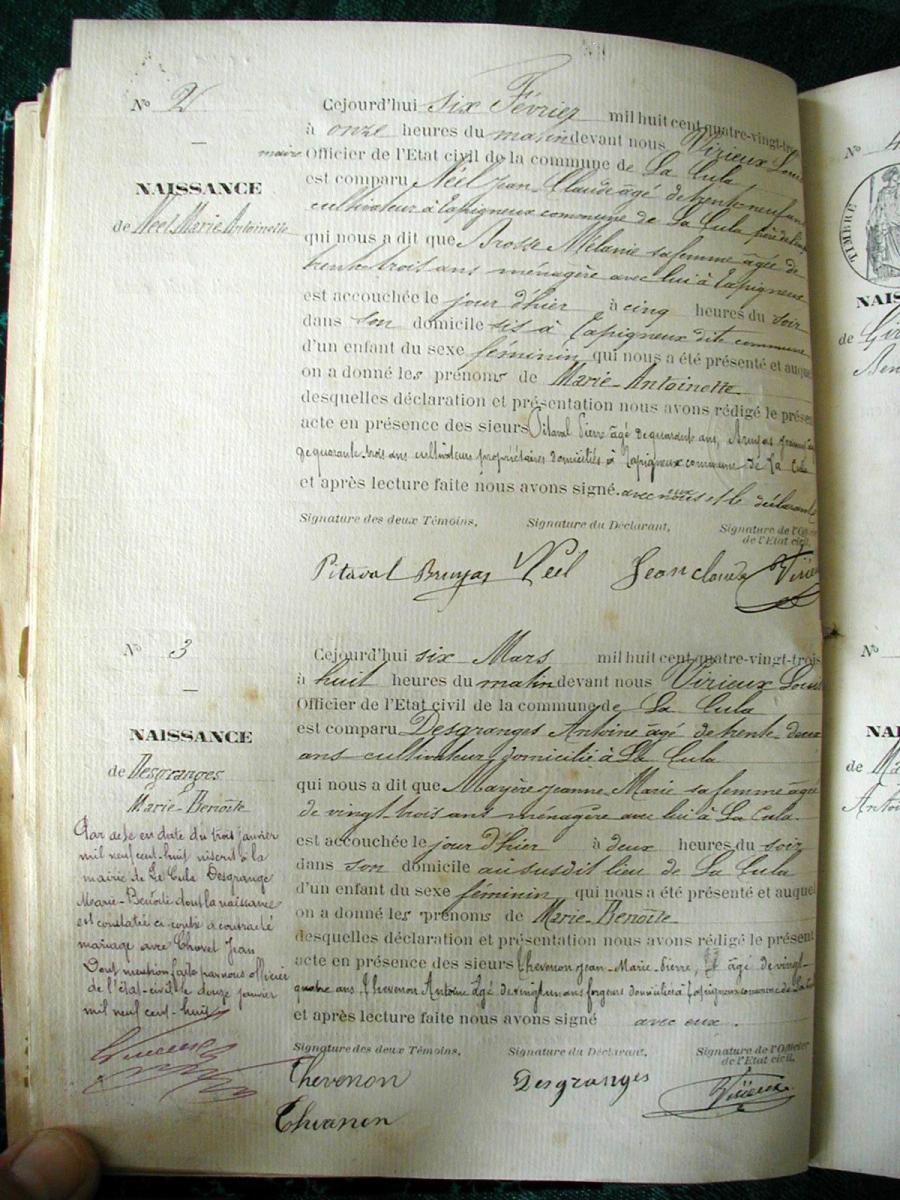 N° 2
NAISSANCE
de Néel Marie Antoinette
Cejourd'hui six Février mil huit cent quatre-vingt-trois
à onze heures du matin devant nous Virieux Louis
maire Officier de l'Etat civil de la commune de La Cula
est comparu Néel Jean Claude âgé de trente neuf ans
cultivateur à Tapigneux commune de La Cula père de
qui nous a dit que Brosse Mélanie sa femme âgée de
trente trois ans ménagère avec lui à Tapigneux
est accouchée le jour d'hier à cinq heures du soir
dans son domicile sis à Tapigneux dite commune
d'un enfant du sexe féminin qui nous a été présenté et auquel
on a donné les prénoms de Marie-Antoinette
desquelles déclaration et présentation nous avons rédigé le présent
acte en présence des sieurs Pitaval Pierre âgé de quarante ans, Bruyas
de quarante-trois ans cultivateurs propriétaires domiciliés à Tapigneux commune de La Cula
et après lecture faite nous avons signé avec eux et le déclarant
Signature des deux Témoins, Signature du Déclarant, Signature de l'Officier
de l'Etat civil,
Pitaval Bruyas Néel Jean claude Virieux
N° 3
NAISSANCE
de Desgranges
Marie-Benoîte
Par acte en date du trois janvier
mil neuf cent huit inscrit à la
mairie de La Cula Desgrange
Marie-Benoîte dont la naissance
est constatée ci contre a contracté
mariage avec Chovet Jean
Dont mention faite par nous officier
de l'état-civil le douze janvier
mil neuf cent huit
Cejourd'hui six Mars mil huit cent quatre-vingt-trois
à huit heures du matin devant nous Virieux Louis
Officier de l'Etat civil de la commune de La Cula
est comparu Desgranges Antoine âgé de trente deux
ans cultivateur, domicilié à La Cula
qui nous a dit que Mayère Jeanne Marie sa femme âgée
de vingt trois ans ménagère avec lui à La Cula.
est accouchée le jour d'hier à deux heures du soir
dans son domicile au susdit lieu de La Cula
d'un enfant du sexe féminin qui nous a été présenté et auquel
on a donné les prénoms de Marie-Benoîte
desquelles déclaration et présentation nous avons rédigé le présent
acte en présence des sieurs Thevenon Jean-Marie-Pierre, âgé de vingt-
quatre ans Thevenon Antoine âgé de vingt un ans forgeurs domiciliés à Tapigneux commune de La Cula
et après lecture faite nous avons signé avec eux.
Signature des deux Témoins, Signature du Déclarant, Signature de l'Officier
de l'Etat civil,
Thevenon Desgranges Virieux
Thevenon
N° 4
TIMBRE
NAIS
de Gir
Ben
N°
NAI
de Ma
Antoi